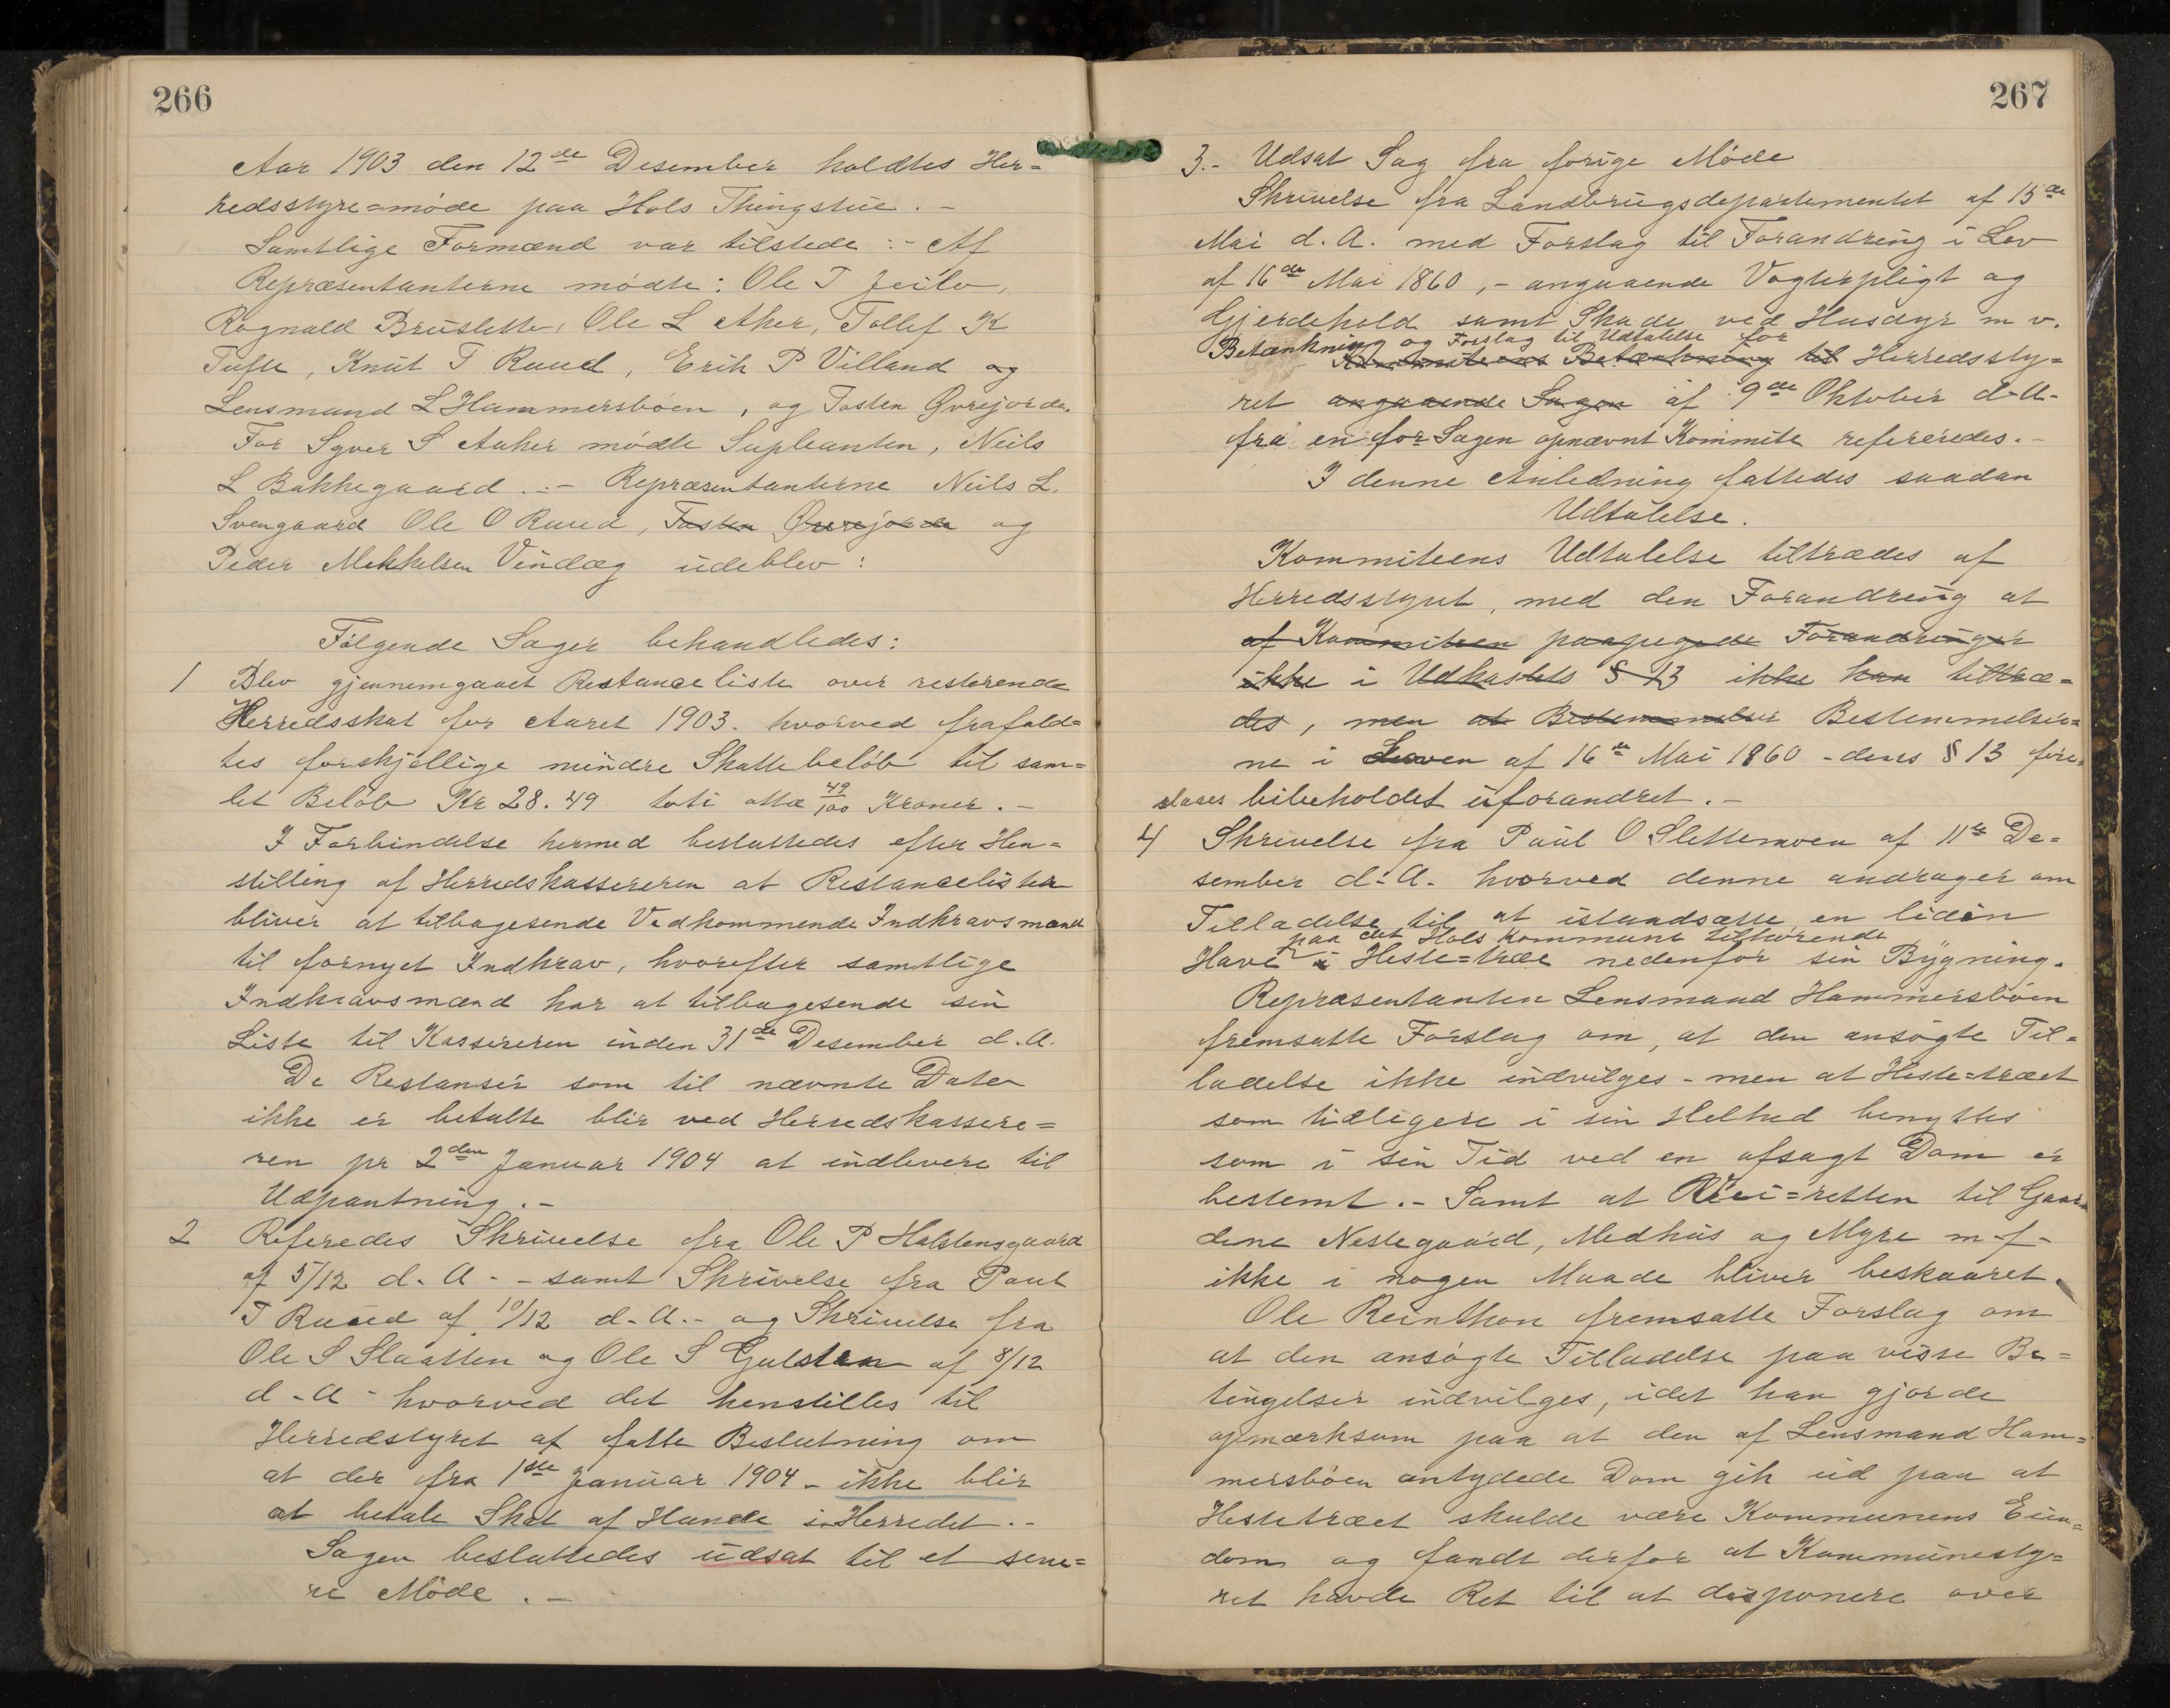 266
Aar 1903 den 12de Desember holdtes Her=
redsstyre=møde paa Hols Thingstue. -
Samtlige Formænd var tilstede :- Af
Repræsentanterne mødte: Ole T Jeilo,
Ragnald Bruslette, Ole L Aker, Tollef K
Tufte, Knut T Ruud, Erik P Villand og
Lensmand L Hammersbøen, og Tosten Øvrejorde.
For Syver S Aaker mødte Supleanten, Neils
L Bakkegaard .:- Repræsentanterne Neils L.
Svengaard Ole O Ruud, Tosten Øvrejorde og
Peder Mekkelsen Vindæg udeblev :
Følgende Sager behandledes:
1 Blev gjennemgaaet Restanceliste over resterende
Herredsskat for Aaret 1903. hvorved frafald=
tes forskjellige mindre Skattebeløb til sam=
let Beløb Kr 28.49 toti otte 49/100 Kroner. -
I Forbindelse hermed besluttedes efter Hen=
stilling af Herredskassereren at Restancelisten
bliver at tilbagesende Vedkommende Indkravsmænd
til fornyet Indkrav, hvorefter samtlige
Indkravsmænd har at tilbagesende sin
Liste til Kassereren inden 31de Desember d.A.
De Restanser som til nævnte Dato
ikke er betalte blir ved Herredskassere=
ren pr 2den Januar 1904 at indlevere til
Udpantning. -
2 Referedes Skrivelse fra Ole P Halstensgaard
af 5/12 d. A. - samt Skrivelse fra Paul
T Ruud af 10/12 d. A. - og Skrivelse fra
Ole S Slaatten og Ole S Gulsten af 8/12
d - A - hvorved det henstilles til
Herredstyret at fatte Beslutning om
at der fra 1ste Januar 1904 - ikke blir
at betale Skat af Hunde i Herredet. -
Sagen besluttedes udsat til et sene=
re Møde. -
267
3.- Udsat Sag fra forige Møde
Skrivelse fra Landbrugsdepartementet af 15de
Mai d. A. med Forslag til Forandring i Lov
af 16de Mai 1860, - angaaende Vogterpligt og
Gjerdehold samt Skade ved Husdyr m v.
Betænkning og Forslag til Udtalelse for
Kommiteens Betænkning til Herredssty=
ret angaaende Sagen af 9de Oktober d-A-
fra en for Sagen opnævnt Kommite refereredes. -
I denne Anledning fattedes saadan
Udtalelse.
Kommiteens Udtalelse tiltrædes af
Herredsstyret, med den Forandring at
af Kommiteen paapegede Forandringer
ikke i Udkastets § 13 ikke kan tiltræ=
des, men at Bestemmelser Bestemmelser=
ne i Loven af 16de Mai 1860 - dens § 13 fore=
slaaes bibeholdet uforandret. -
4 Skrivelse fra Paul O Slettemoen af 11te De=
sember d. A. hvorved denne andrager om
Tilladelse til at istandsætte en liden
paa det Hols Kommune tilhørende
Have i Heste=træe nedenfor sin Bygning.
Repræsentanten Lensmand Hammersbøen
fremsatte Forslag om, at den ansøgte Til=
ladelse ikke indvilges - men at Heste=træet
som tidligere i sin Helhed benyttes
som i sin Tid ved en afsagt Dom er
bestemt. - Samt at Vei=retten til Gaar=
dene Nestegaard, Medhus og Myre m - f -
ikke i nogen Maade bliver beskaaret.
Ole Reinthon fremsatte Forslag om
at den ansøgte Tilladelse paa visse Be=
tingelser indvilges, idet han gjorde
opmærksom paa at den af Lensmand Ham=
mersbøen antydede Dom gik ud paa at
Hestetræet skulde være Kommunens Eien=
dom og fandt derfor at Kommunesty=
ret havde Ret til at disponere over